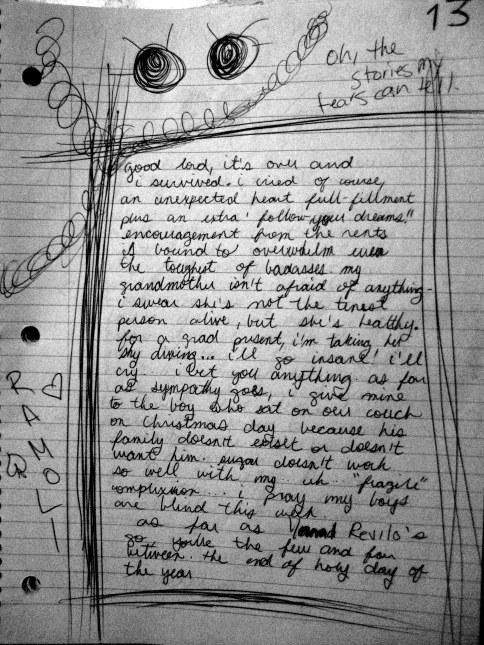 13
oh, the
stories my
tears can tell.
good lord, it's over and
i survived. i cried of course,
an unexpected heart full-fillment
plus an extra "follow your dreams!"
encouragement from the rents
is bound to overwhelm even
the toughest of badasses. my
grandmother isn't afraid of anything-
i swear she's not the
person alive, but she's healthy.
for a grad present, i'm taking her
sky diving... i'll go insane! i'll
cry... i bet you anything. as far
as sympathy goes, i give mine
to the boy who sat on our couch
on christmas day because his
family doesn't exist or doesn't
want him. sugar doesn't work
so well with my uh "fragile"
complixion... i pray my boys
are blind this week
as far as Revilo's
go you're the few and far
between. the end of holy day of
the year